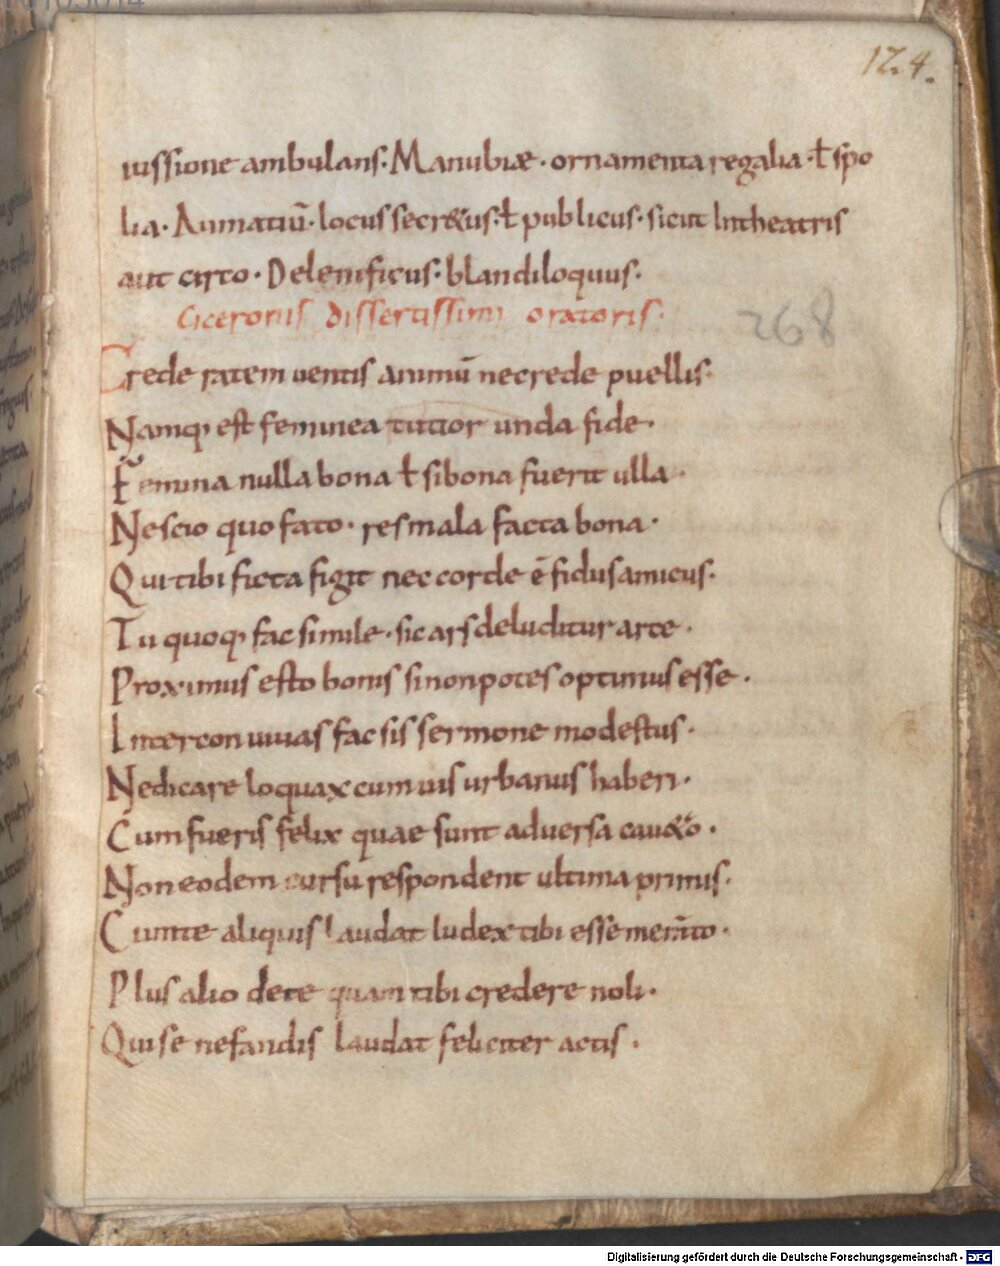 124.
iussione ambulans· Manubiæ· ornamenta regalia· ł spo
lia· Animatiū· locus secr&us· ł publicus· sicut Intheatris
aut circo· Delenificus· blandiloquus·
Ciceronis dissertissimi oratoris·
268
Crede ratem uentis animū necrede puellis·
Namq; est feminea tutior unda fide·
Femina nulla bona ł sibona fuerit ulla·
Nescio quo fato· resmala facta bona·
Qui tibi ficta figit nec corde ē fidus amicus·
Tu quoq; fac simile· sic ars deluditur arte·
Proximus esto bonis sinonpotes optimus esse·
Interconuiuas fac sis sermone modestus·
Nedicare loquax cum uis urbanus haberi·
Cum fueris felix quae sunt aduersa cau&o·
Non eodem cursu respondent ultima primis·
Cumte aliquis laudat Iudex tibi esse
Plus alio dete quam tibi credere noli·
Qui se nefandis laudat feliciter actis·
Digitalisierung gefördert durch die Deutsche Forschungsgemeinschaft - DFG